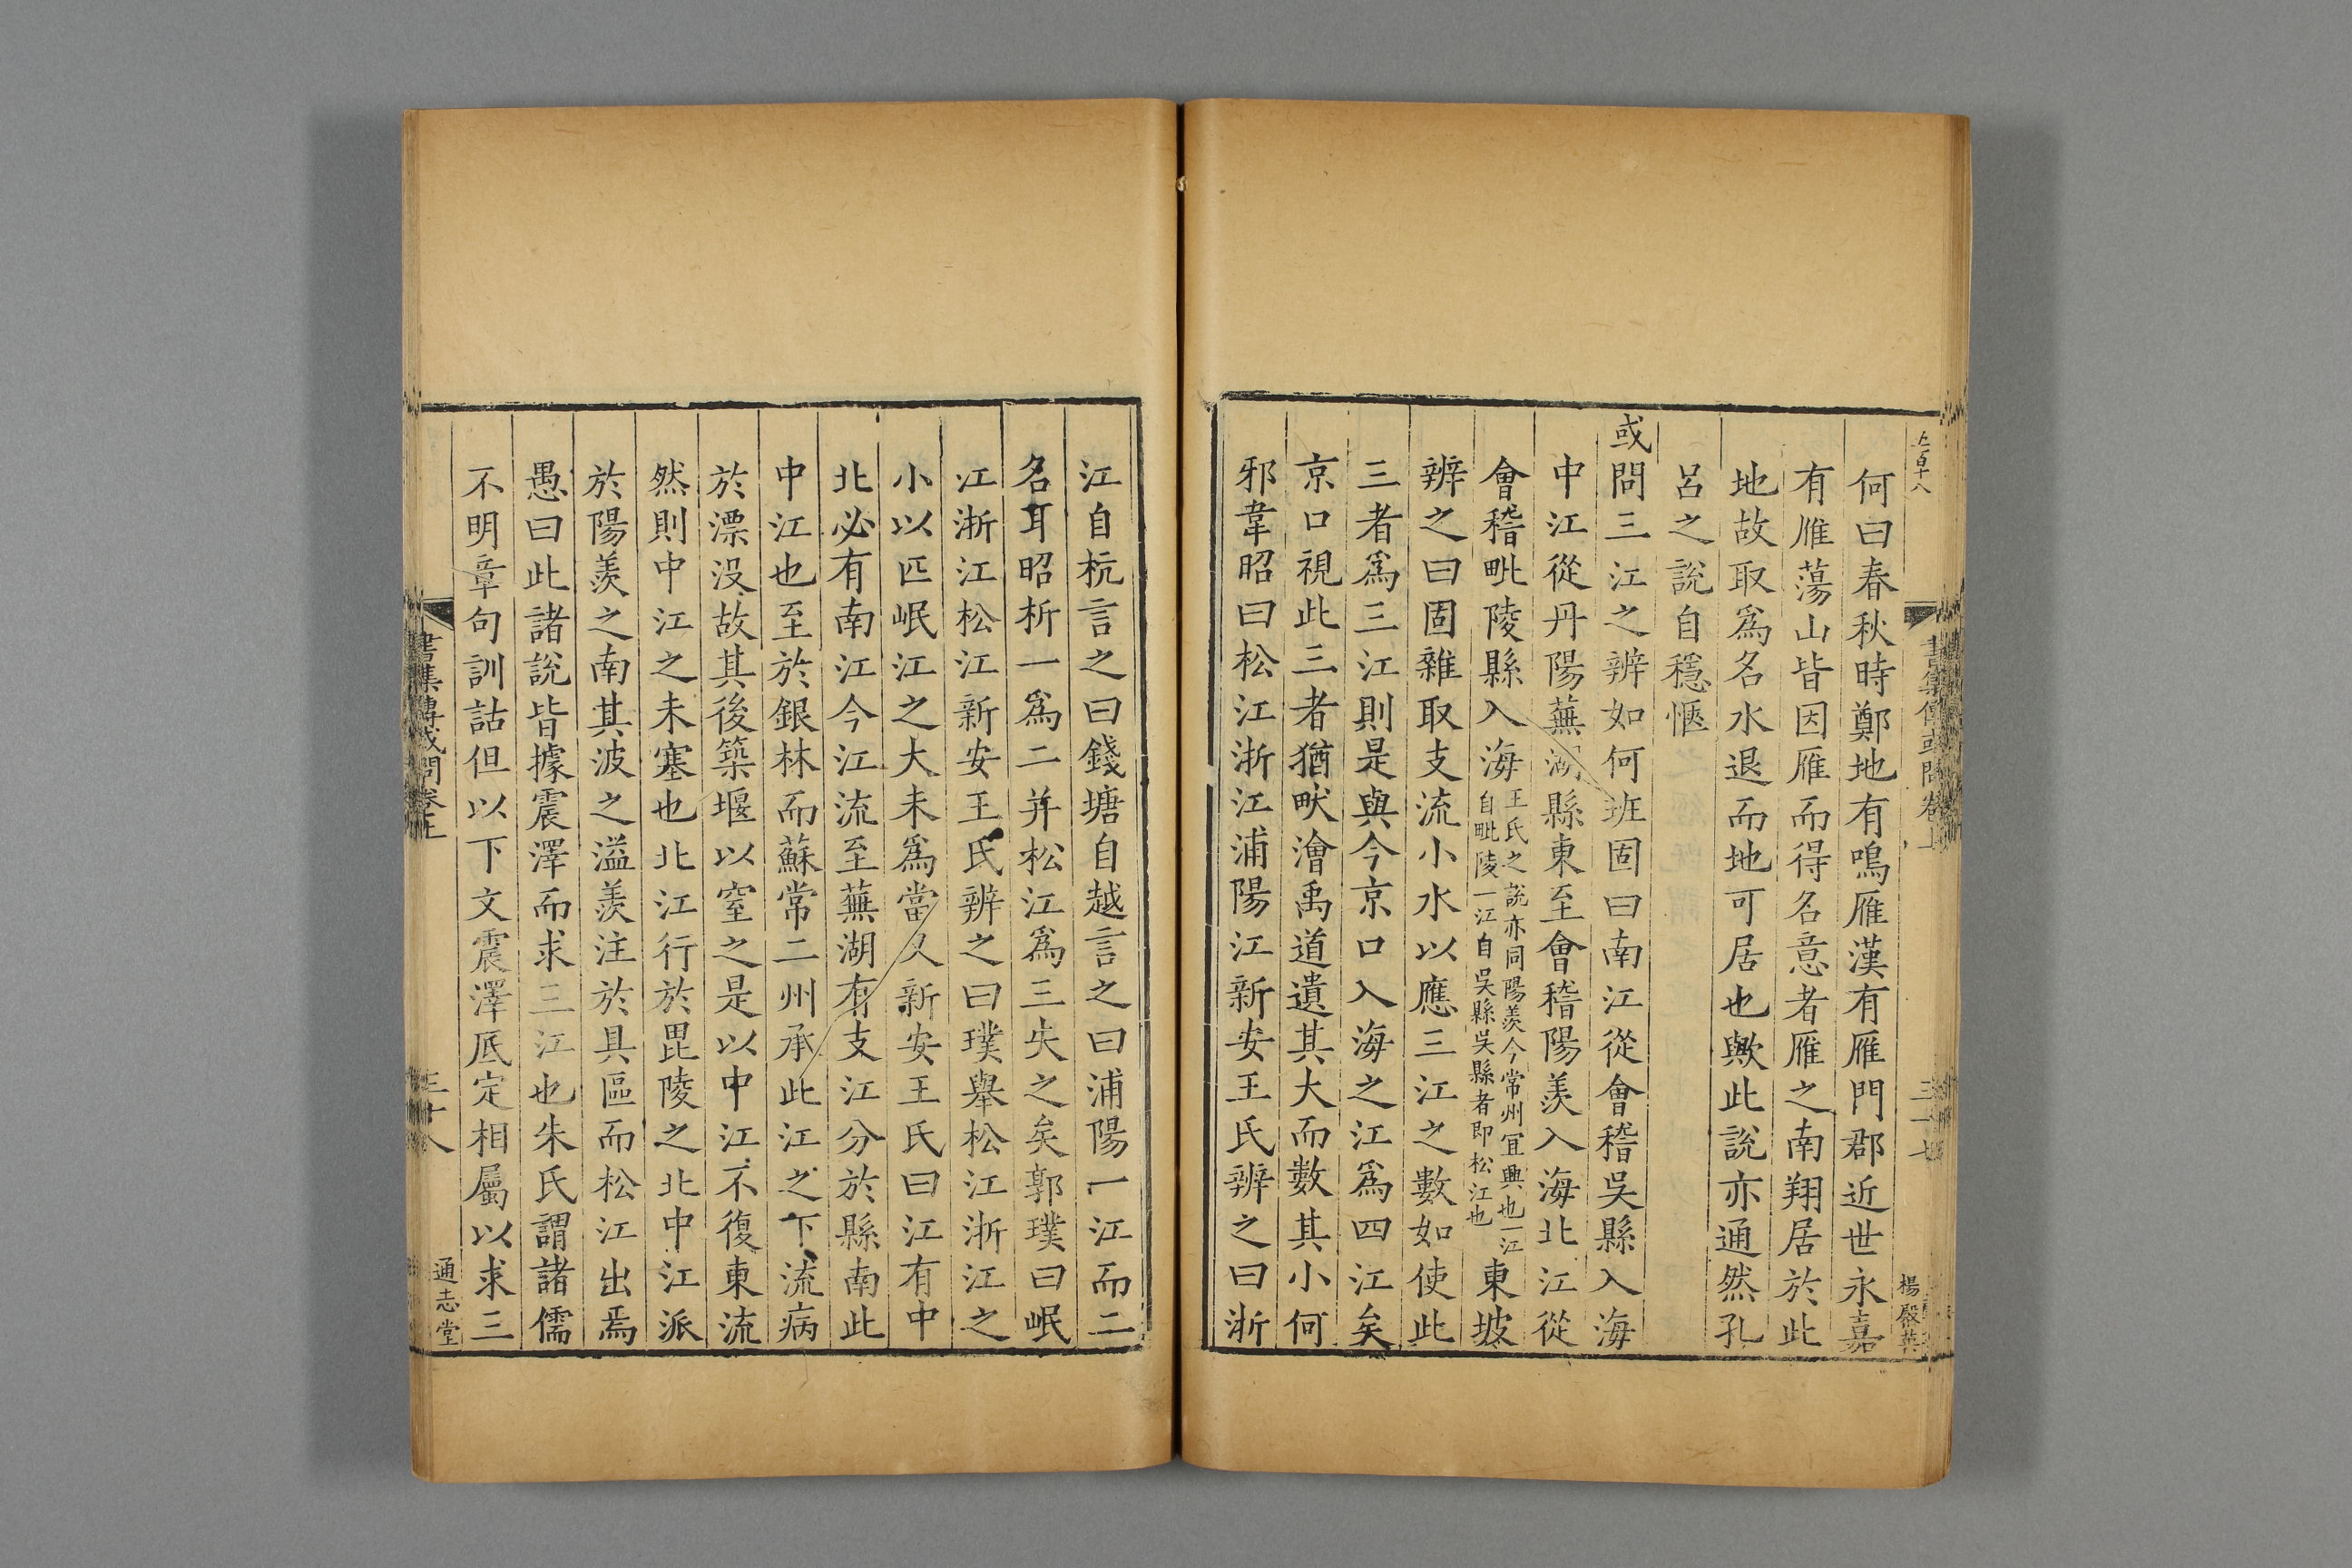 何曰春秋時鄭地有鳴雁漢有雁門郡近世永嘉
有雁蕩山皆因雁而得名意者雁之南翔居於此
地故取爲名水退而地可居也歟此說亦通然孔
呂之說自穩愜
或問三江之辨如何班固曰南江從會稽吳縣入海
中江從丹陽蕪湖縣東至會稽陽羨入海北江從
會稽毗陵縣入海王氏之說亦同陽羨今常州宜興也一江自毗陵一江自吳縣吳縣者即松江也東坡
辨之曰固雜取支流小水以應三江之數如使此
三者爲三江則是與今京口入海之江爲四江矣
京口視此三者猶畎澮禹道遺其大而數其小何
邪韋昭曰松江浙江浦陽江新安王氏辨之曰浙
楊殷英
江自杭言之曰錢塘自越言之曰浦陽一江而二
名耳昭析一爲二并松江爲三失之矣郭璞曰岷
江浙江松江新安王氏辨之曰璞舉松江浙江之
小以匹岷江之大未爲當又新安王氏曰江有中
北必有南江今江流至蕪湖有支江分於縣南此
中江也至於銀林而蘇常二州承此江之下流病
於漂沒故其後築堰以窒之是以中江不復東流
然則中江之未塞也北江行於毘陵之北中江派
於陽羨之南其波之溢羨注於具區而松江出焉
愚曰此諸說皆據震澤而求三江也朱氏謂諸儒
不明章句訓詁但以下文震澤厎定相屬以求三
書集傳或問卷上
三十八
通志堂